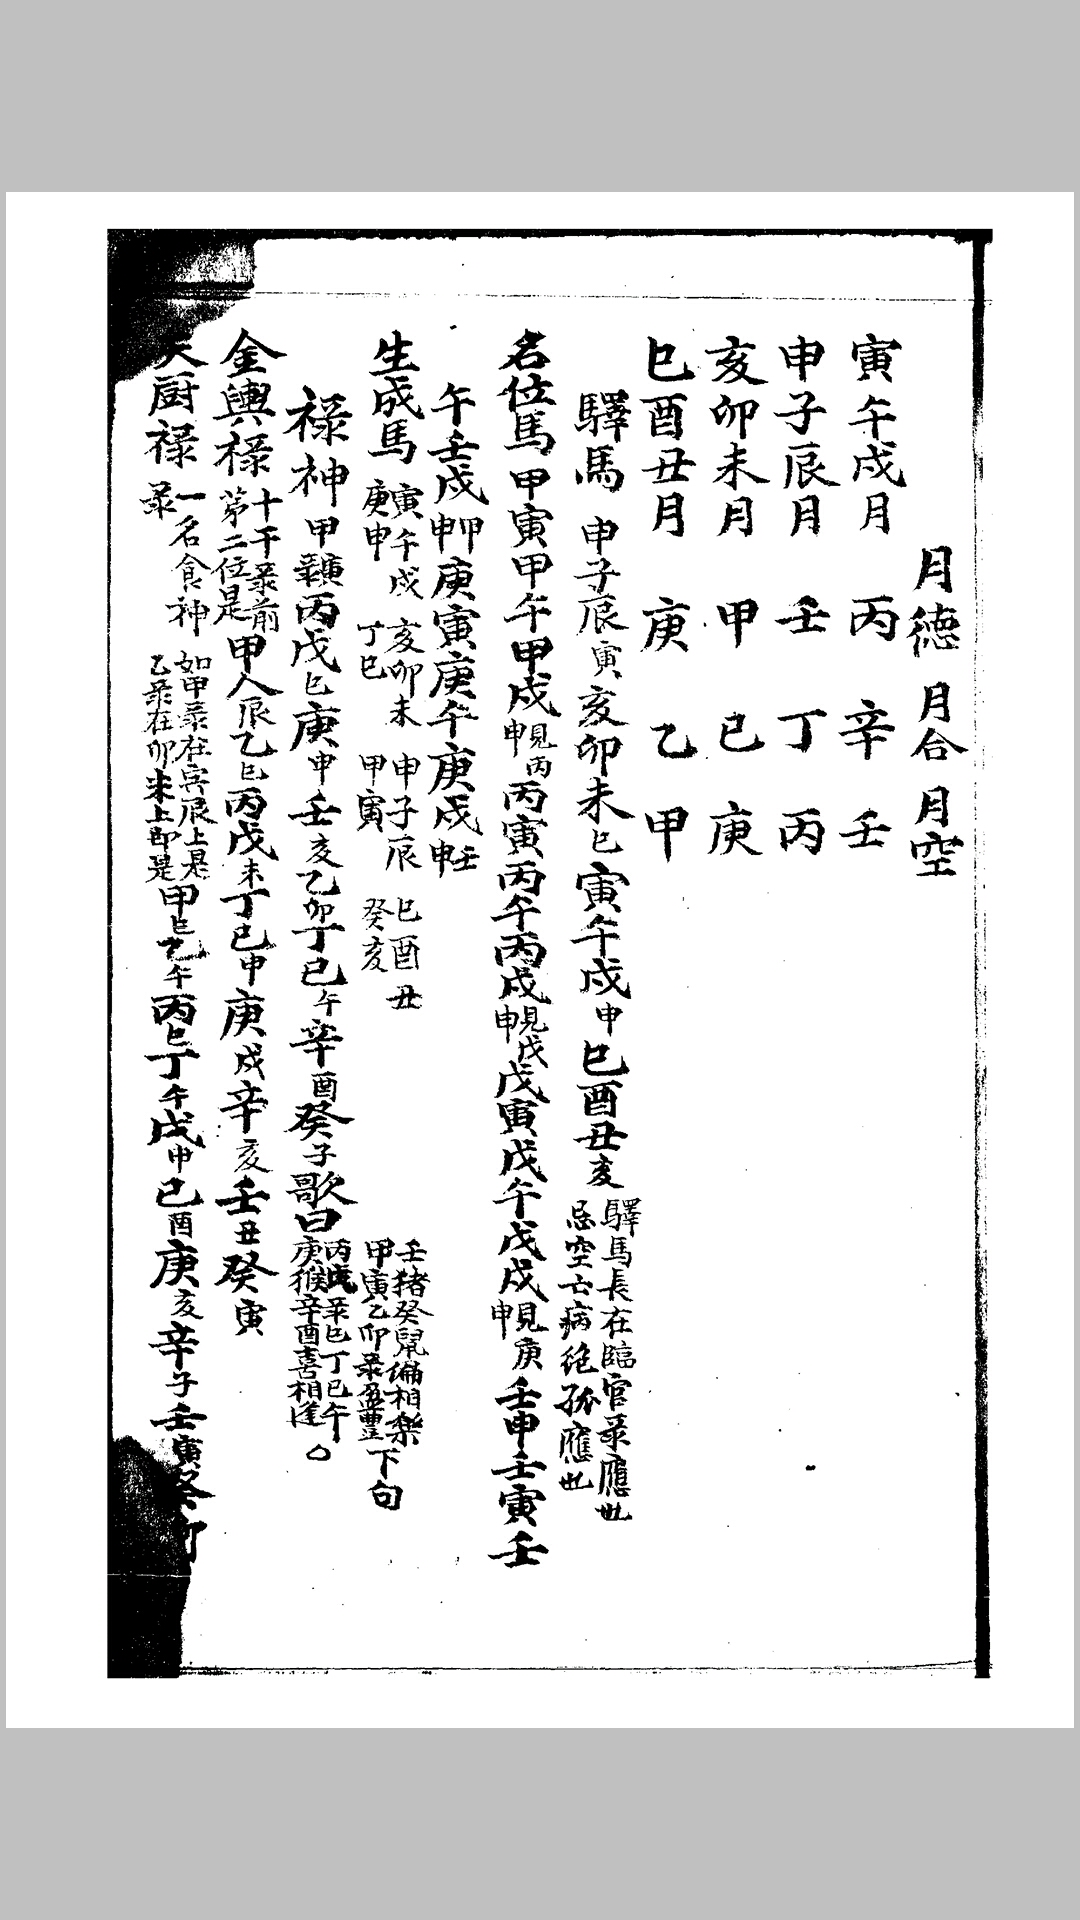 月德 月合 月空
寅午戌月 丙 辛 壬
申子辰月 壬 丁 丙
亥卯未月 甲 己 庚
巳酉丑月 庚 乙 甲
驛馬 申子辰寅亥卯未巳寅午戌申巳酉丑亥 驛馬長在臨官彔應也 忌空亡病絶孤應也
名位馬 甲寅甲午甲戌 見丙申 丙寅丙午丙戌 見戊申 戊寅戊午戊戌 見庚申 壬申壬寅壬
午壬戌 甲申 庚寅庚午庚戌 壬申
生成馬 寅午戌 庚申 亥卯未 丁巳 申子辰 甲寅 巳酉丑 癸亥 壬猪癸鼠偏相樂 甲寅乙卯彔盈豐 下句
禄神 甲彔寅丙戊巳庚申壬亥乙卯丁己午辛酉癸子歌曰 丙戊彔巳丁己午 庚猴辛酉喜相逢 〇
金輿禄 十干彔前 第二位是 甲人辰乙巳丙戊未丁己申庚戌辛亥壬丑癸寅
天厨禄 一名食神彔 如甲彔在寅辰上是 乙彔在卯未上即是 甲巳乙午丙巳丁午戊申己酉庚亥辛子壬寅癸卯